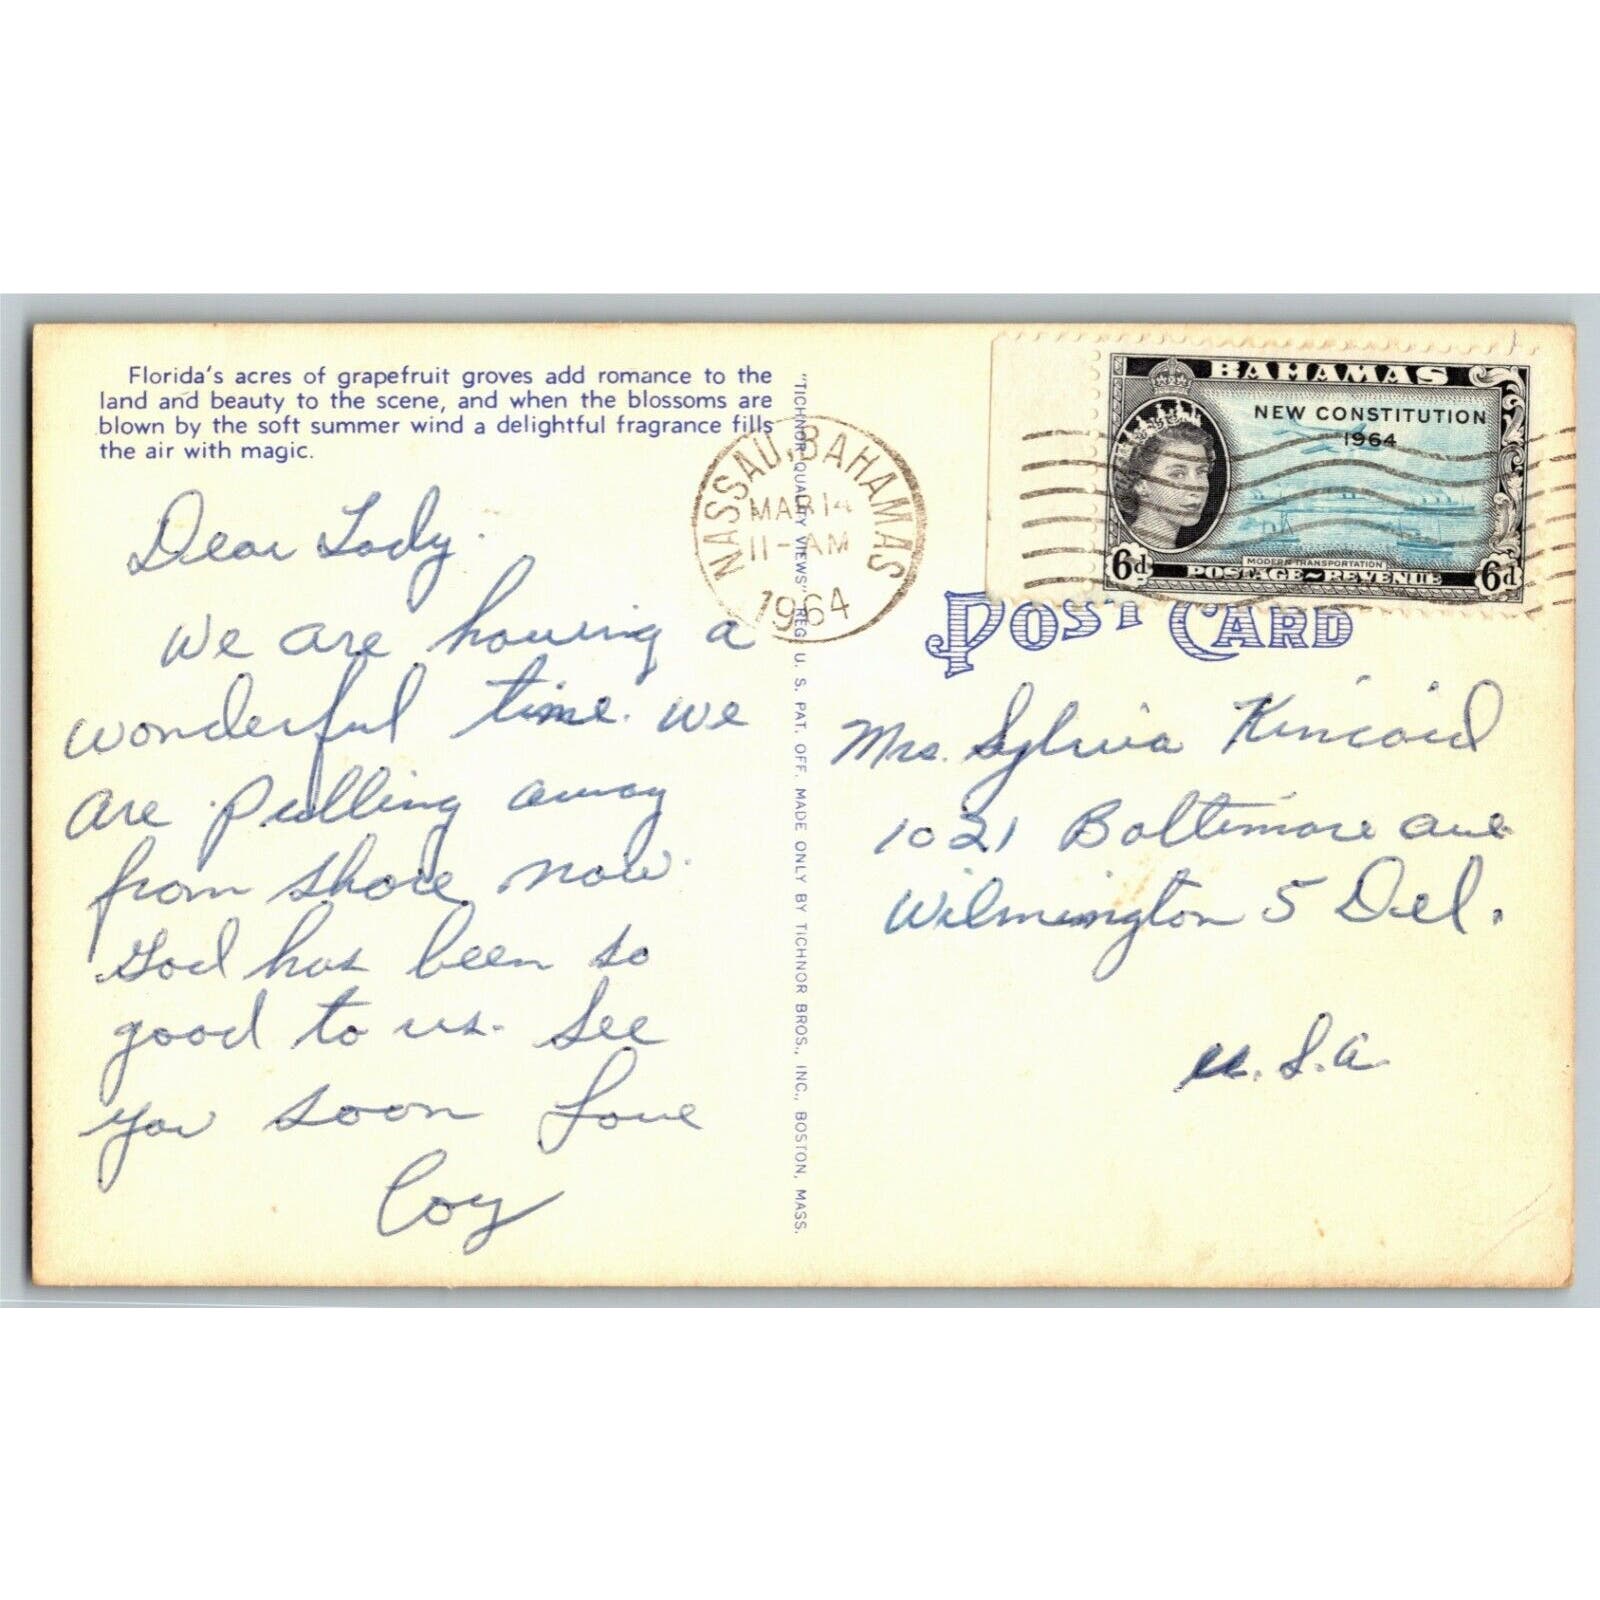 Florida's acres of grapefruit groves add romance to the
land and beauty to the scene, and when the blossoms are
blown by the soft summer wind a delightful fragrance fills
the air with magic.
Dear Lady.
We are having a
wonderful time. We
are pulling away
from shore now.
God has been so
good to us. See
you soon Love
Coy
"TICHNOR QUALITY VIEWS" REG. U. S. PAT. OFF. MADE ONLY BY TICHNOR BROS., INC., BOSTON, MASS.
NASSAU, BAHAMAS
MAR 14
11-AM
1964
BAHAMAS
NEW CONSTITUTION
1964
MODERN TRANSPORTATION
6d POSTAGE~REVENUE 6d
POST CARD
Mrs. Sylvia Kincaid
1021 Baltimore Ave
Wilmington 5 Del.
U.S.A.